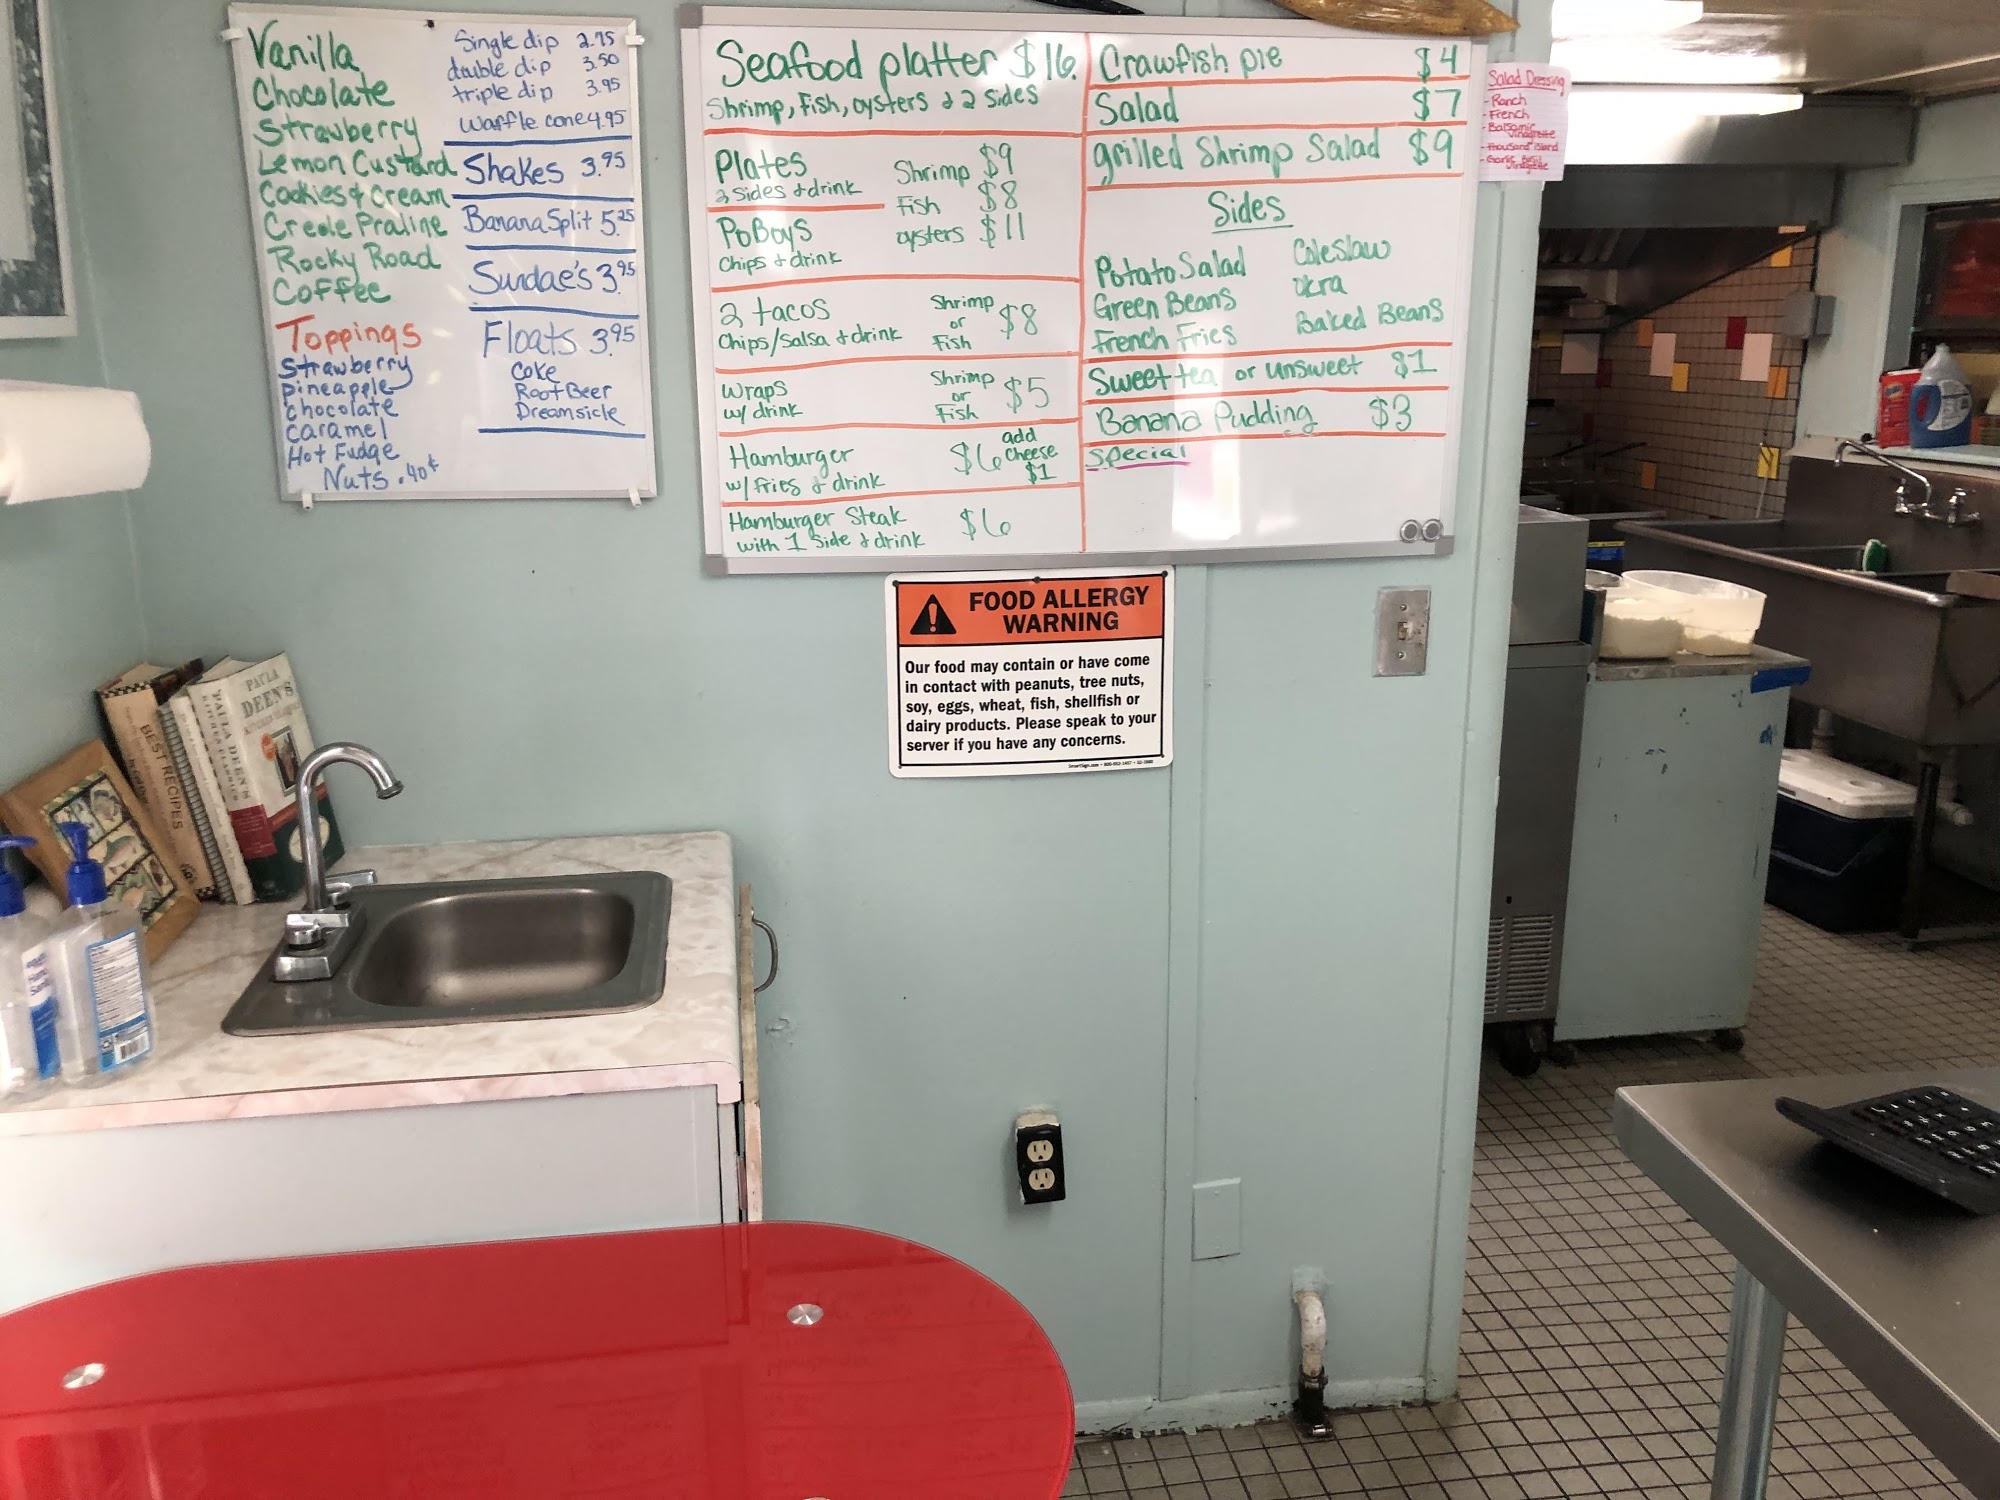 Vanilla
Chocolate
Strawberry
Lemon Custard
Cookies & Cream
Creole Praline
Rocky Road
Coffee
Toppings
Strawberry
pineapple
chocolate
caramel
Hot Fudge
Nuts .40¢
Single dip 2.75
double dip 3.50
triple dip 3.95
Waffle cone 4.95
Shakes 3.95
Banana Split 5.25
Sundae's 3.95
Floats 3.95
Coke
Root Beer
Dreamsicle
Seafood platter $16.
Shrimp, Fish, oysters & 2 sides
Plates
2 sides & drink
PoBoys
Chips & drink
Shrimp $9
Fish $8
oysters $11
2 tacos
Chips/Salsa & drink
Shrimp
or
Fish
$8
Wraps
w/ drink
Shrimp
or
Fish
$5
Hamburger
w/ fries & drink
$6
add
Cheese
$1
Hamburger Steak
with 1 side & drink
$6
Crawfish pie $4
Salad $7
grilled Shrimp Salad $9
Sides
Potato Salad
Green Beans
French Fries
Coleslaw
okra
Baked Beans
Sweet tea or unsweet $1
Banana Pudding $3
Special
Salad Dressing
- Ranch
- French
- Balsamic
Vinagrette
- thousand island
FOOD ALLERGY
WARNING
Our food may contain or have come
in contact with peanuts, tree nuts,
soy, eggs, wheat, fish, shellfish or
dairy products. Please speak to your
server if you have any concerns.
BEST RECIPES
PAULA DEEN'S
KITCHEN CLASSICS
PAULA
DEEN'S